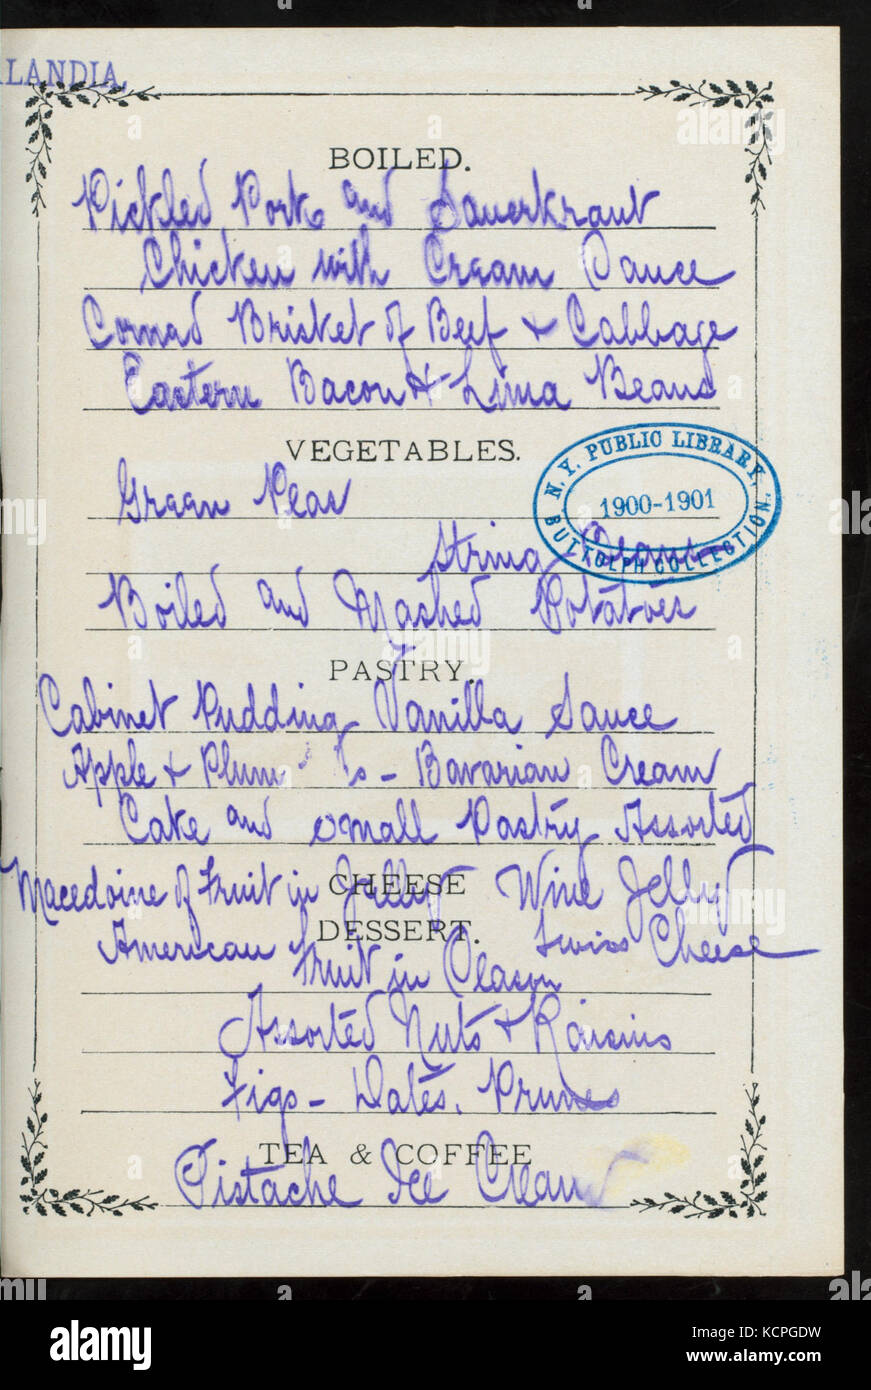 LANDIA.
BOILED.
Pickled Pork and Sauerkraut
Chicken with Cream Sauce
Corned Brisket of Beef & Cabbage
Eastern Bacon & Lima Beans
VEGETABLES.
Green Peas
N. Y. PUBLIC LIBRARY,
1900-1901
BUTTOLPH COLLECTION.
String Beans
Boiled and Mashed Potatoes
PASTRY.
Cabinet Pudding Vanilla Sauce
Apple & Plum - Bavarian Cream
Cake and Small Pastry Assorted
Macedoine of Fruit in Jelly Wine Jelly
CHEESE
American Swiss Cheese
DESSERT.
Fruit in Season
Assorted Nuts & Raisins
Figs - Dates. Prunes
TEA & COFFEE
Pistache Ice Cream
alamy
Image ID: KCPGDW
www.alamy.com